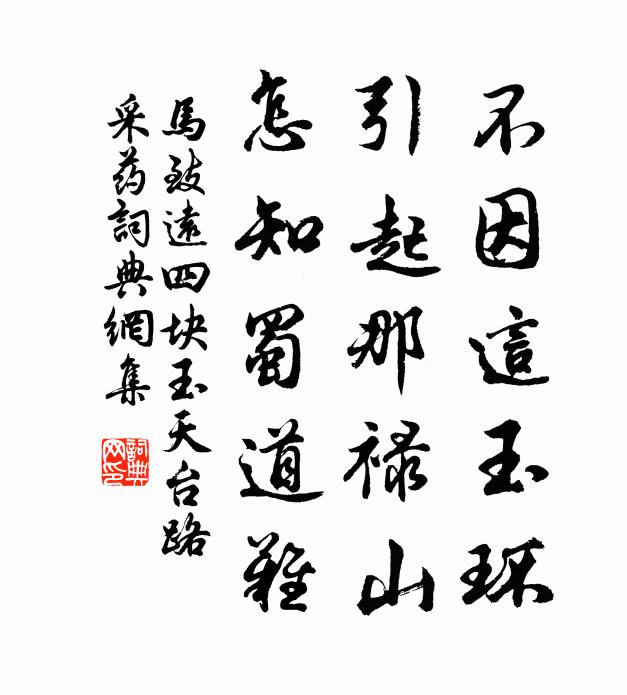 不因這玉环
引起那禄山
怎知蜀道難
馬致遠四块玉天台路
采药詞典網集
詞典
网印